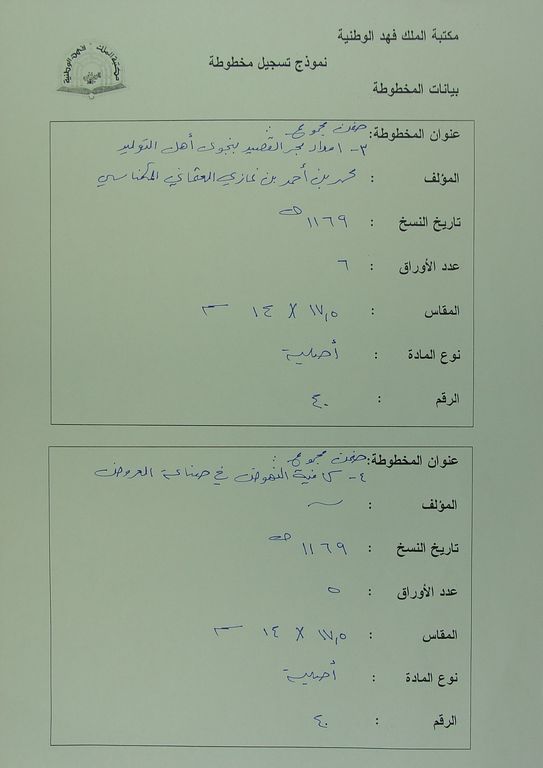 مكتبة الملك فهد الوطنية
نموذج تسجيل مخطوطة
بيانات المخطوطة
عنوان المخطوطة: ضمن مجموع
٣- امداد بحر القصيد ببحري أهل التوليد
المؤلف : محمد بن أحمد بن غازي العثماني المكناسي
تاريخ النسخ : ١١٦٩ هـ
عدد الأوراق : ٦
المقاس : ١٧,٥ X ١٤ سم
نوع المادة : أصلية
الرقم : ٤٠
عنوان المخطوطة: ضمن مجموع
٤- كافية النهوض في صناعة العروض
المؤلف : ــ
تاريخ النسخ : ١١٦٩ هـ
عدد الأوراق : ٥
المقاس : ١٧,٥ X ١٤ سم
نوع المادة : أصلية
الرقم : ٤٠